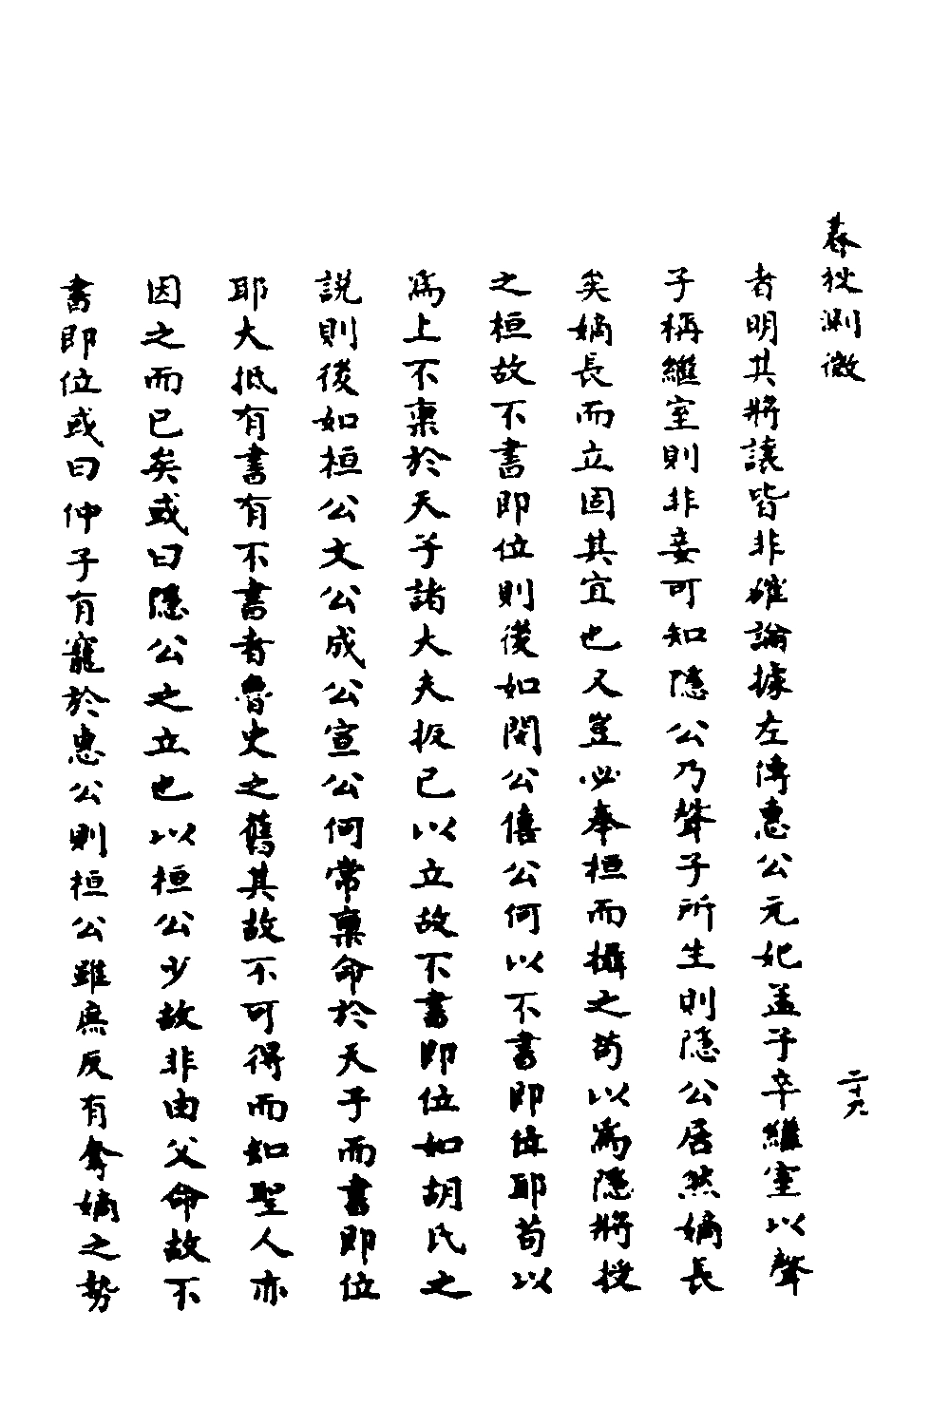 春秋測微
二十九
者明其將讓皆非確論據左傳惠公元妃孟子卒繼室以聲
子稱繼室則非妾可知隱公乃聲子所生則隱公居然嫡長
矣嫡長而立固其宜也又豈必奉桓而攝之苟以為隱將授
之桓故不書即位則後如閔公僖公何以不書即位耶苟以
為上不稟於天子諸大夫扳已以立故不書即位如胡氏之
説則後如桓公文公成公宣公何常稟命於天子而書即位
耶大抵有書有不書者魯史之舊其故不可得而知聖人亦
因之而已矣或曰隱公之立也以桓公少故非由父命故不
書即位或曰仲子有寵於惠公則桓公雖庶反有奪嫡之勢